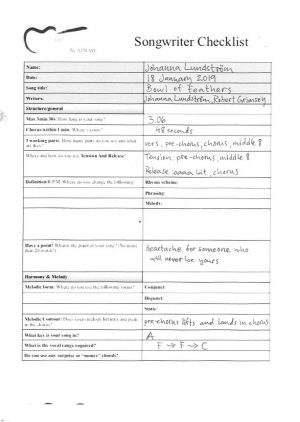 ACADEMY
Songwriter Checklist
Name: Johanna Lundström
Date: 18 January 2019
Song title: Bowl of Feathers
Writers: Johanna Lundström, Robert
Structure/general
Max 3min 30s: How long is your song? 3.06
Chorus within 1 min: Where's yours? 48 seconds
5 working parts: How many parts do you use and what are they? vers, pre-chorus, chorus, middle 8
Where and how do you use Tension And Release? Tension: pre-chorus, middle 8
Release: aaaa bit, chorus
Definition R.P.M: Where do you change the following: Rhyme scheme:
Phrasing:
Melody:
Have a point? What is the point of your song? (No more than 20 words!) heartache for someone who
will never be yours
Harmony & Melody
Melodic form: Where do you use the following forms? Conjunct:
Disjunct:
Static:
Melodic Contour: Does your melody lift into and peak in the chorus? pre-chorus lifts and lands in chorus
What key is your song in? A
What is the vocal range required? F → F → C
Do you use any surprise or "money" chords?